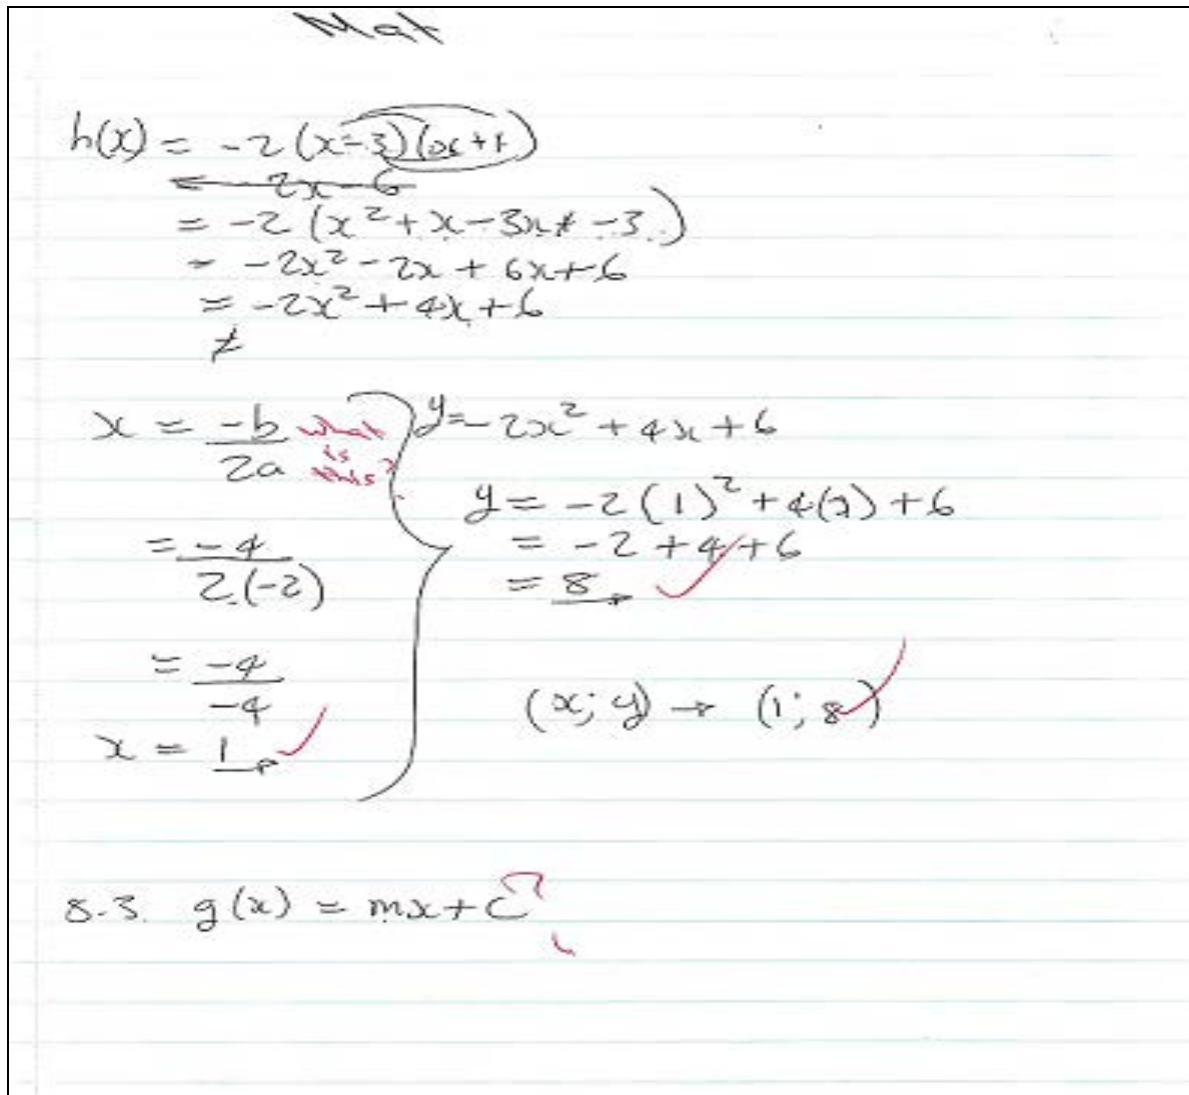 Mat
h(x) = -2(x-3)(x+1)
2x-6
= -2(x²+x-3x -3)
= -2x²-2x+6x+6
= -2x²+4x+6
≠
x = -b/2a what is this?
= -4/2.(-2)
= -4/-4
x = 1
y=-2x²+4x+6
y = -2(1)²+4(1)+6
= -2+4+6
= 8
(x; y) → (1; 8)
8.3. g(x) = mx+c ?